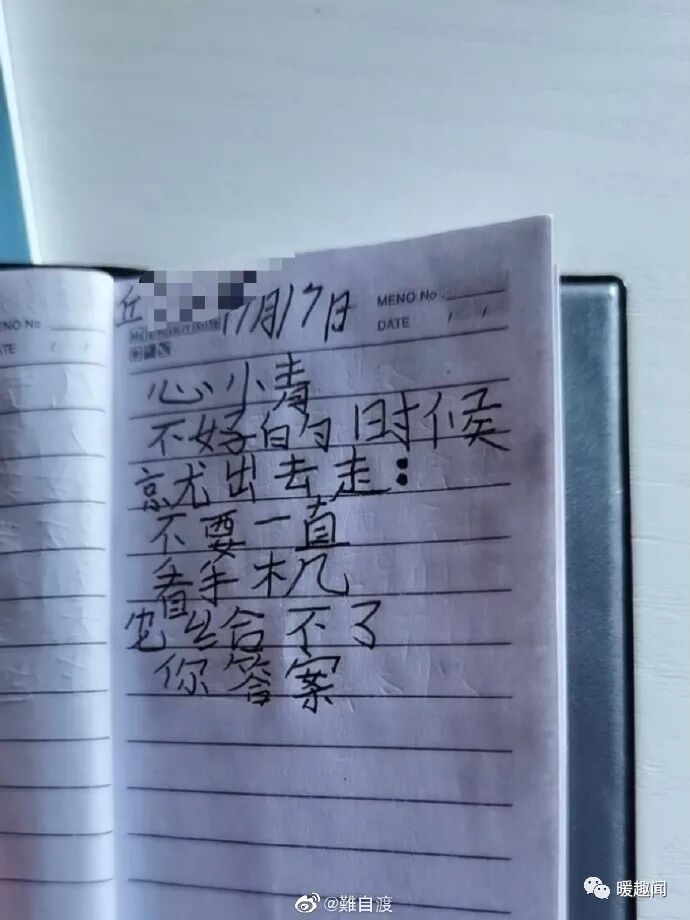 丘
17月17日
MENO No
DATE / /
ENO No
ATE / /
心情
不好的时候
就出去走:
不要一直
看手机
它给不了
你答案
@難自渡
暖趣闻